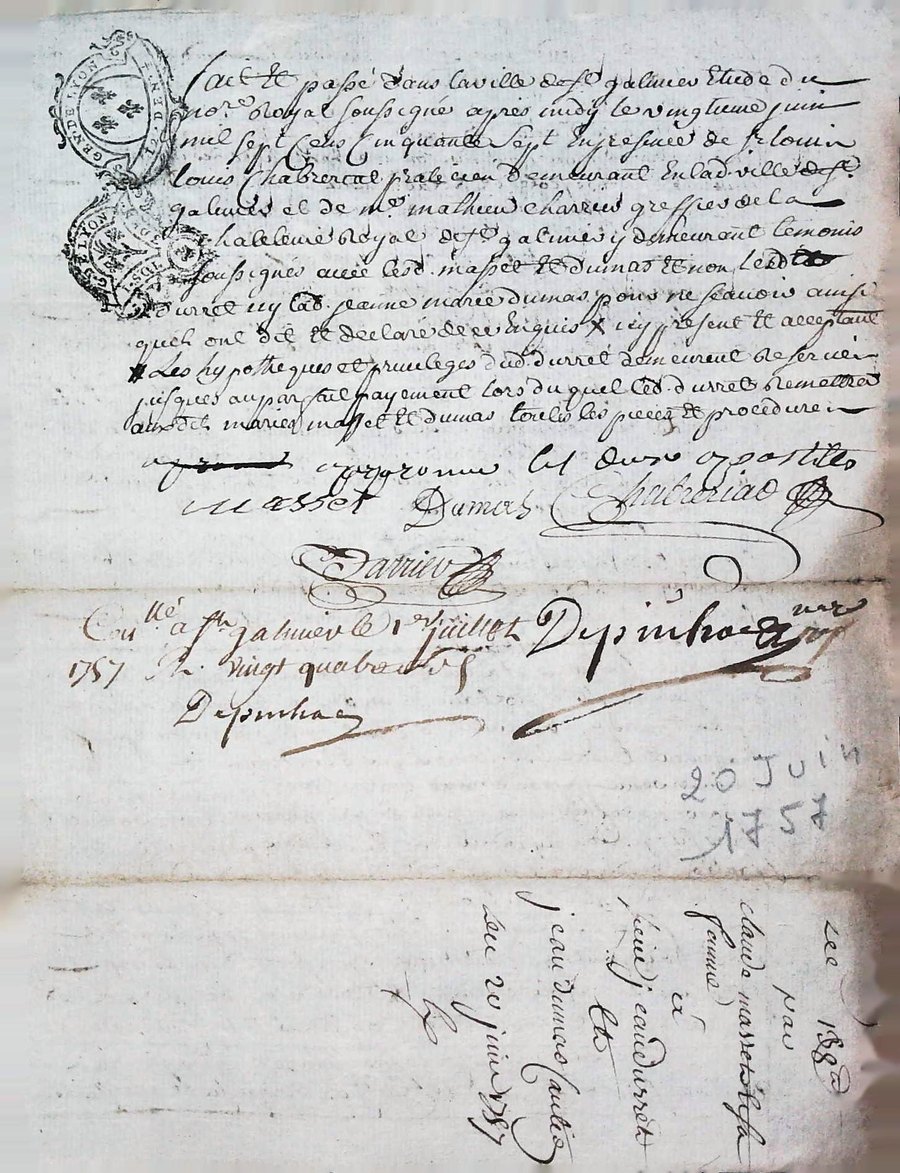 GEN DE LYON
fait Et passé dans la ville de St galmier Etude du
nore Royal soussigné apres midy le vingtieme juin
mil sept Cens Cinquante Sept En presence de sr louis
louis Chabreriat praticien demeurant En lad ville de St
galmier et de me mathieu Charrier greffier de la
chatelenie Royal de St galmier y demeurant temoins
soussignés avec lesd. masset Et dumas Et non led.
durret ny lad. jeanne marie dumas pour ne scavoir ainsi
quels ont dit Et declaré de ce Enquis x ny present Et acceptant
x Les hypotheques et privileges dud. durret demeurent Reservés
jusques au parfait payement lors duquel led. durret Remettra
auxdits mariés masset Et dumas toutes les pieces Et procedures
approuvé les deux apostilles
masset Dumas Chabreriad
Charrier
Conllé a st galmier le 1er juillet
1757 R. vingt quatre sols
Depinhac
Depinhac nore
20 Juin
1757
par
claude masset Et sa
famme
a
jean durret
Et
jean dumas Caution
du 20 juin 1757